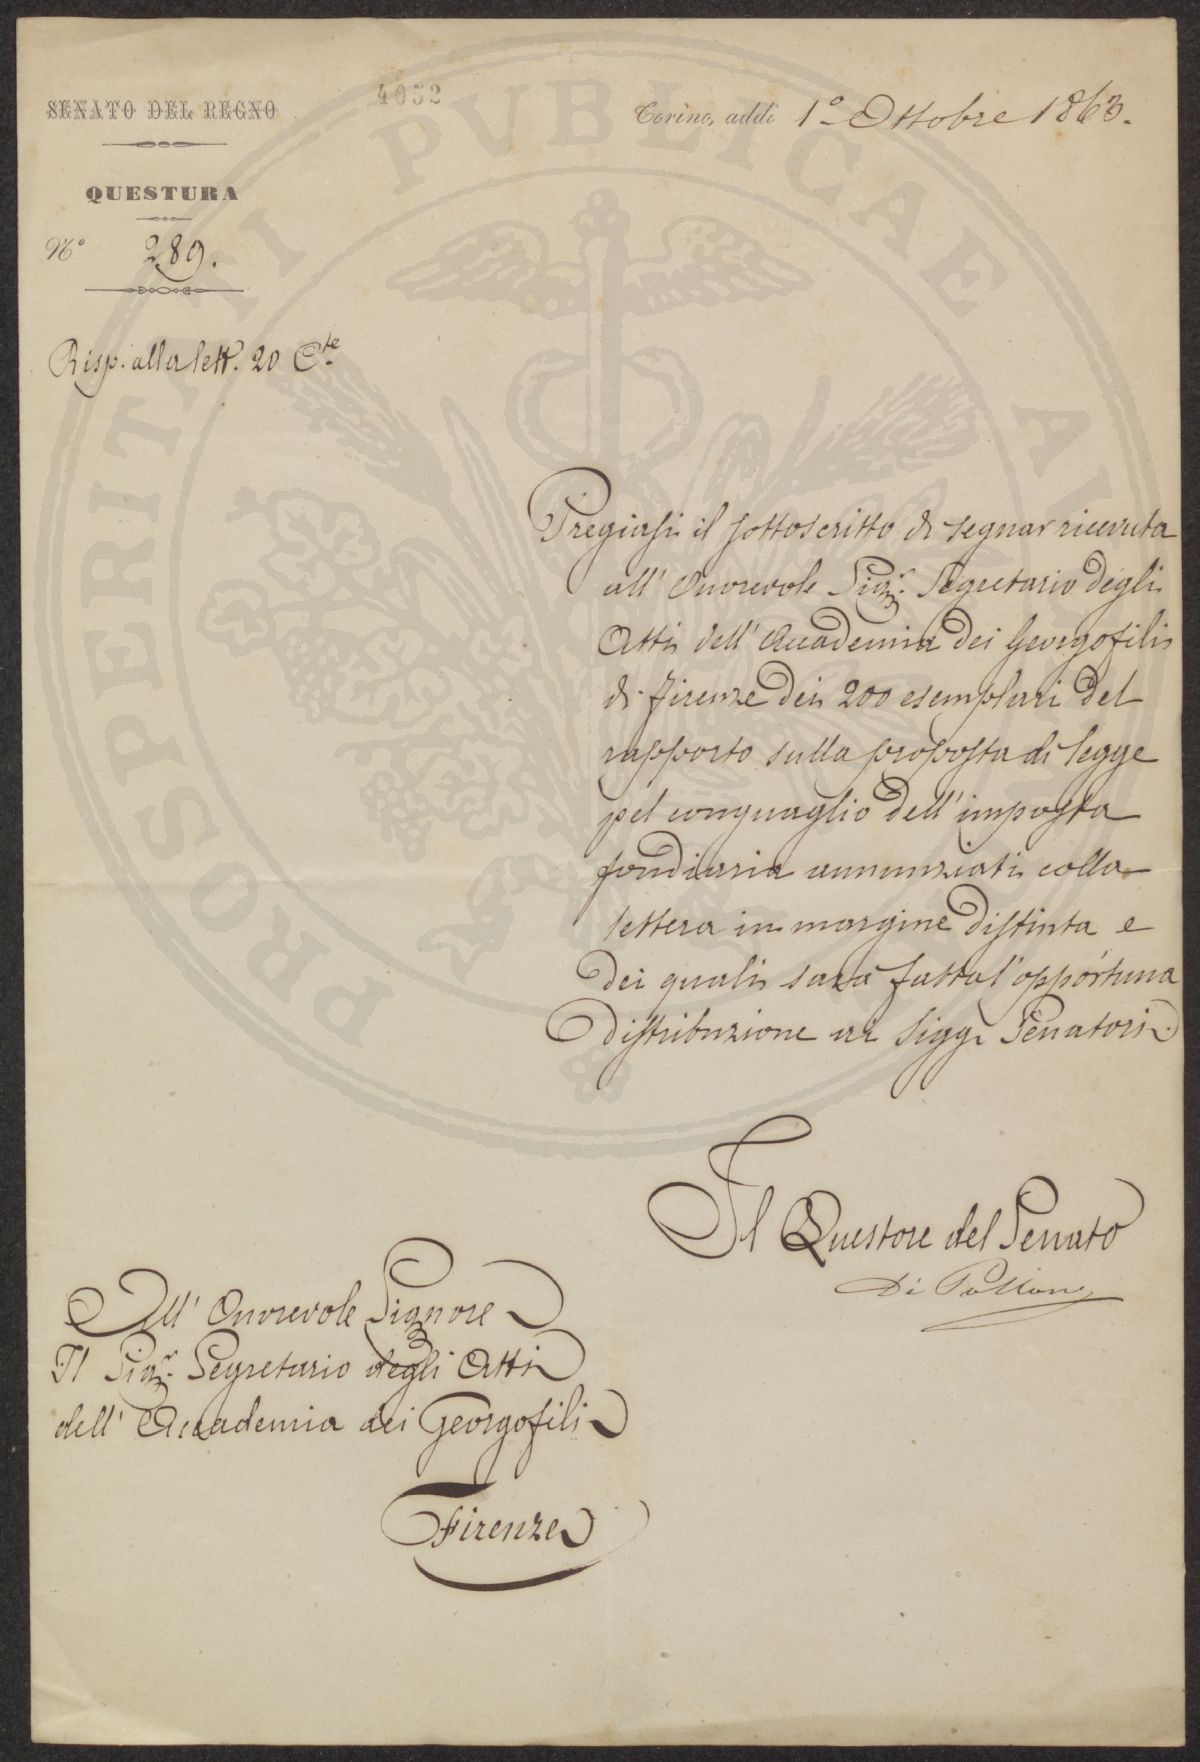 SENATO DEL REGNO
4052
Torino, addì 1° Ottobre 1863.
QUESTURA
N° 289.
Risp. alla lett. 20 C.te
Pregiasi il sottoscritto di segnar ricevuta
all' Onorevole Sig.r Segretario degli
Atti dell' Accademia dei Georgofili
di Firenze dei 200 esemplari del
rapporto sulla proposta di legge
pel conguaglio dell' imposta
fondiaria annunziati colla
lettera in margine distinta e
dei quali sarà fatta l'opportuna
distribuzione ai Sigg.i Senatori.
Il Questore del Senato
Di Pollone
All' Onorevole Signore
Il Sig.r Segretario degli Atti
dell' Accademia dei Georgofili
Firenze
PROSPERITATI PVBLICAE AV